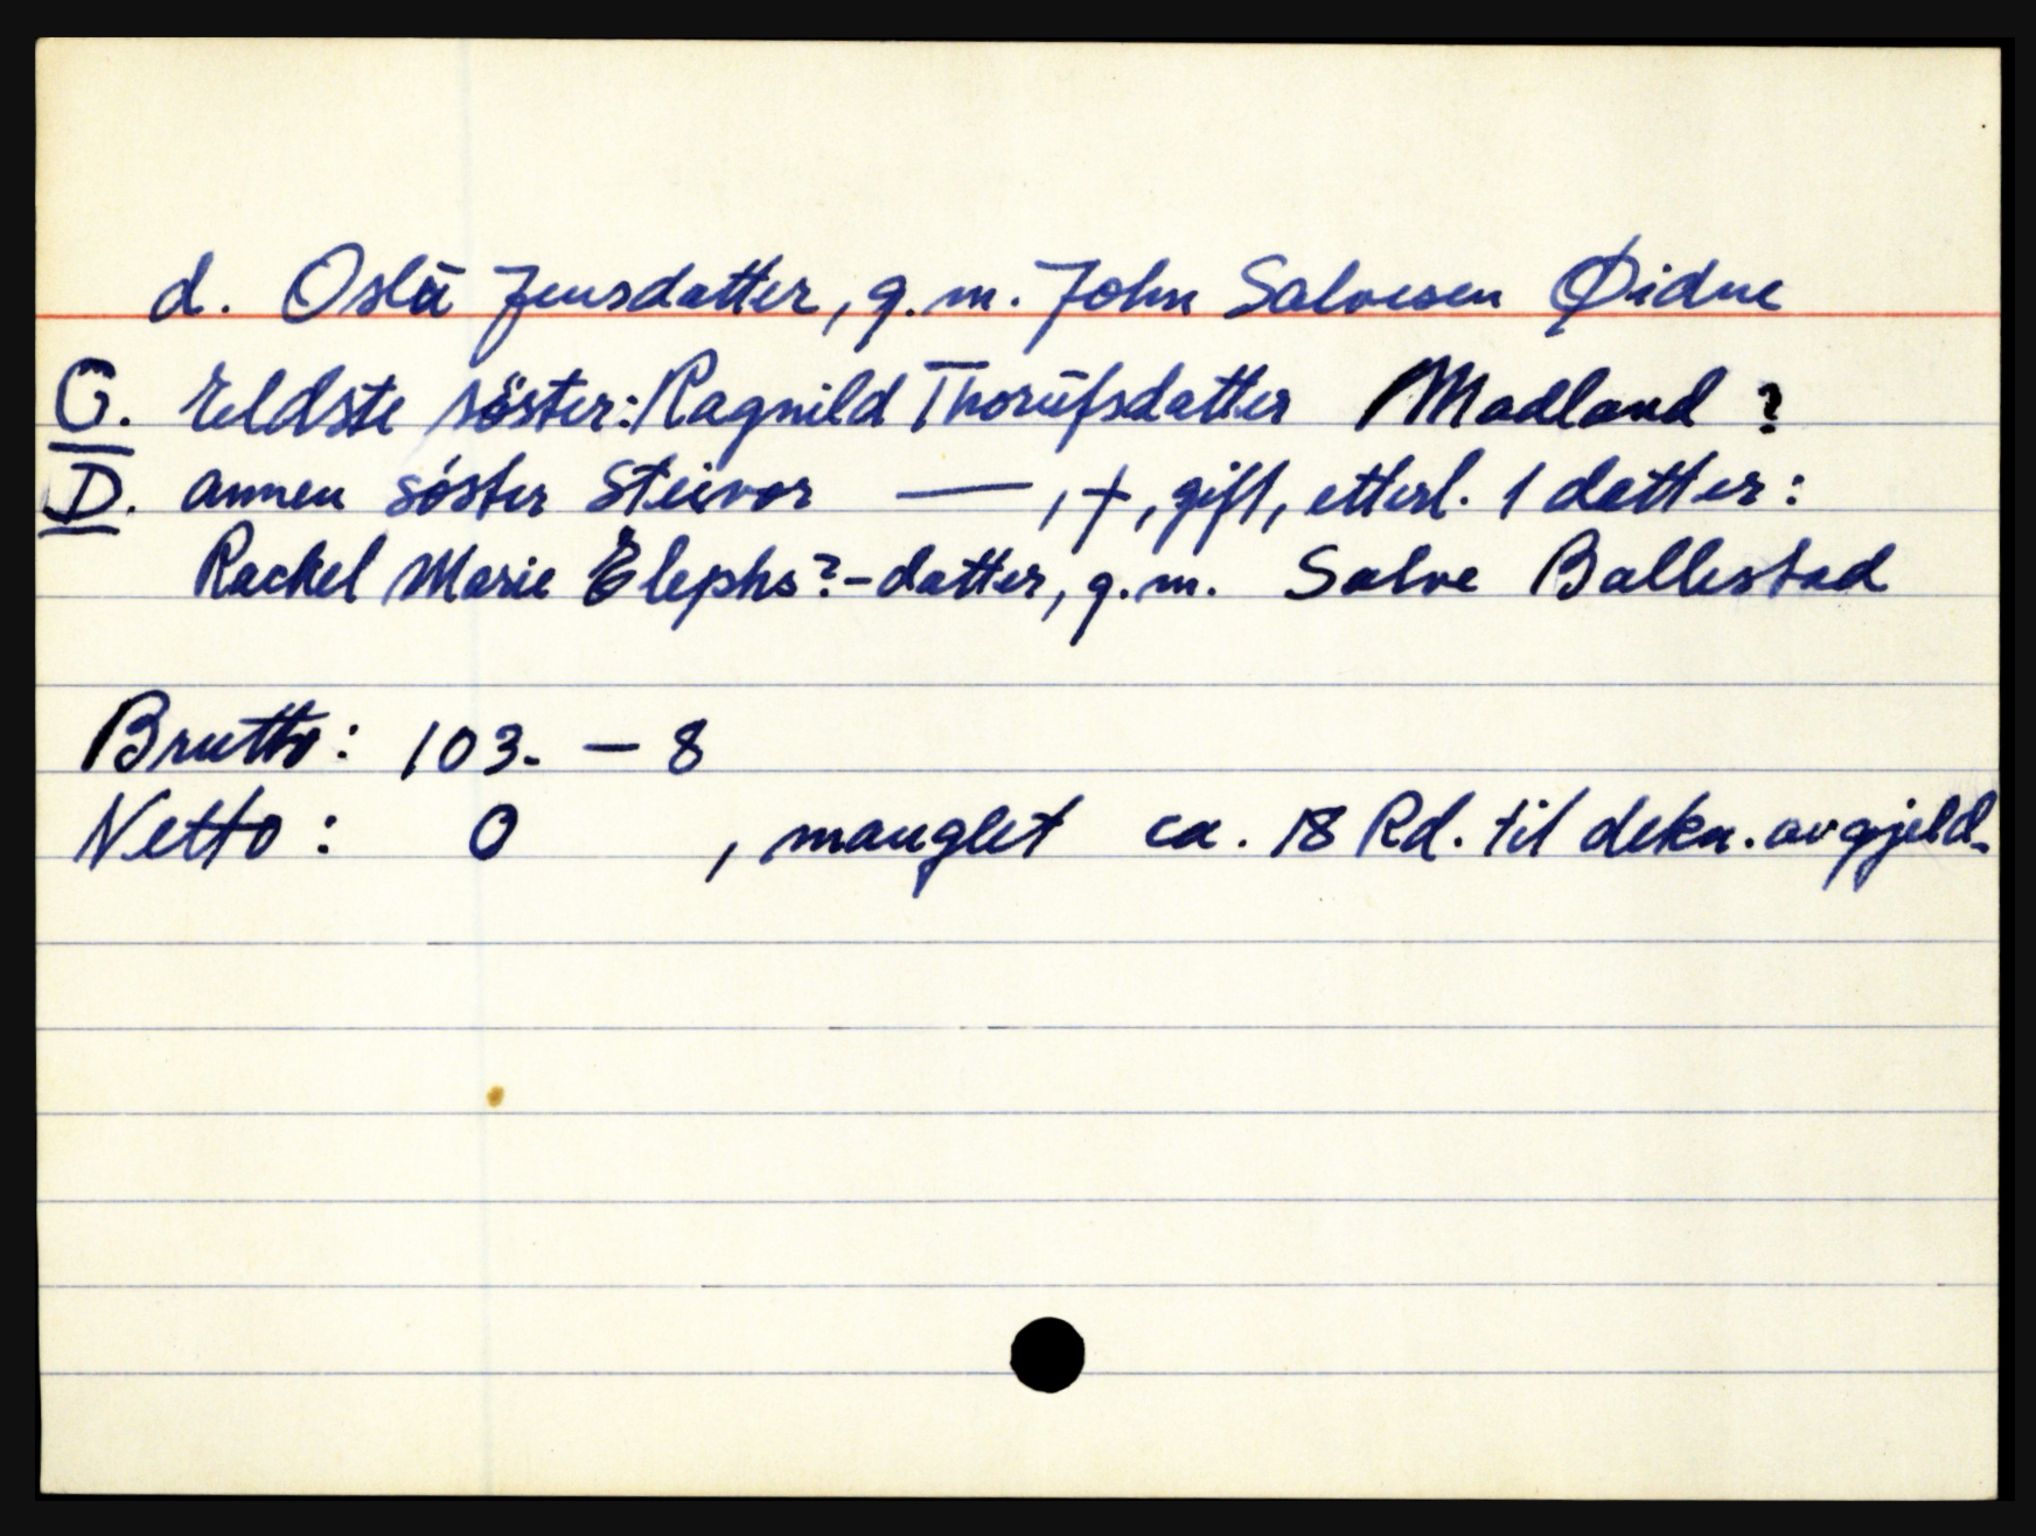 d. Oslū Jensdatter, g.m. John Salvesen Øidne
C. Eldste söster: Ragnild Thorūfsdatter Madland ?
D. annen söster Steivor — , +, gift, etterl. 1 datter:
Rackel Marie Elephs?-datter, g.m. Salve Ballestad
Brutto: 103. – 8
Netto: 0 , manglet ca. 18 Rd. til dekn. av gjeld.